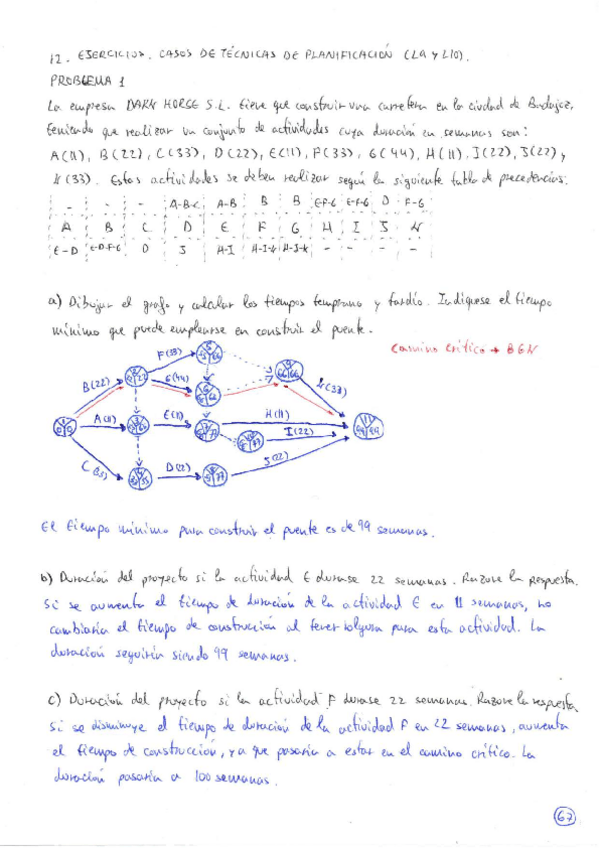 12. EJERCICIOS. CASOS DE TÉCNICAS DE PLANIFICACIÓN (L9 y L10).
PROBLEMA 1
La empresa DARK HORSE S.L. tiene que construir una carretera en la ciudad de Badajoz,
teniendo que realizar un conjunto de actividades cuya duración en semanas son:
A(11), B(22), C(33), D(22), E(11), F(33), G(44), H(11), I(22), J(22) y
K(33). Estas actividades se deben realizar según la siguiente tabla de precedencias:
- - - A-B-C A-B B B E-F-G E-F-G D F-G
A B C D E F G H I J K
E-D E-D-F-G D J H-I H-I-K H-I-K - - - -
a) Dibujar el grafo y calcular los tiempos temprano y tardío. Indíquese el tiempo
mínimo que puede emplearse en construir el puente.
Camino crítico → BGK
F(33)
B(22) G(44) K(33)
A(11) E(11) H(11)
I(22)
C(33) D(22) J(22)
El tiempo mínimo para construir el puente es de 99 semanas.
b) Duración del proyecto si la actividad E durase 22 semanas. Razone la respuesta.
Si se aumenta el tiempo de duración de la actividad E en 11 semanas, no
cambiaría el tiempo de construcción al tener holgura para esta actividad. La
duración seguiría siendo 99 semanas.
c) Duración del proyecto si la actividad F durase 22 semanas. Razone la respuesta
Si se disminuye el tiempo de duración de la actividad F en 22 semanas, aumenta
el tiempo de construcción, ya que pasaría a estar en el camino crítico. La
duración pasaría a 100 semanas.
67